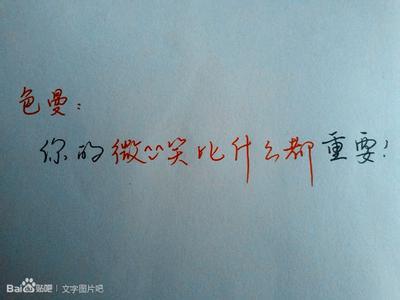 色曼：
你的微^^笑比什么都重要！
Bai贴吧|文字图片吧